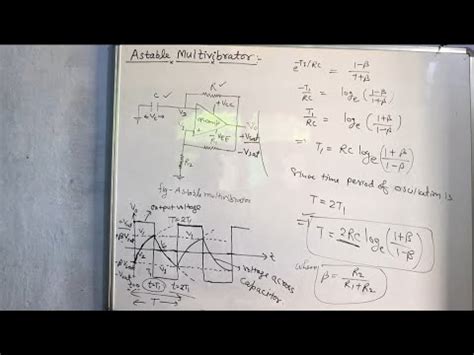 Astable Multivibrator:-
R ✓
C ✓
V2
+Vcc
-VEE
Vo
+Vsat
-Vsat
R1
R2
fig-Astable multivibrator
output voltage
T=2T1
+Vsat
+βVsat
-βVsat
t=0
t=T1
t=2T1
T
t
voltage across
capacitor
e^-T1/RC = 1-β/1+β
-T1/RC = loge(1-β/1+β)
T1/RC = loge(1+β/1-β)
⇒ T1 = RC loge(1+β/1-β)
Since time period of osculation is
T = 2T1
⇒ T = 2RC loge(1+β/1-β)
where
β = R2/R1+R2